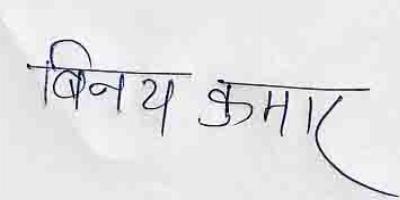 बिनय कुमार